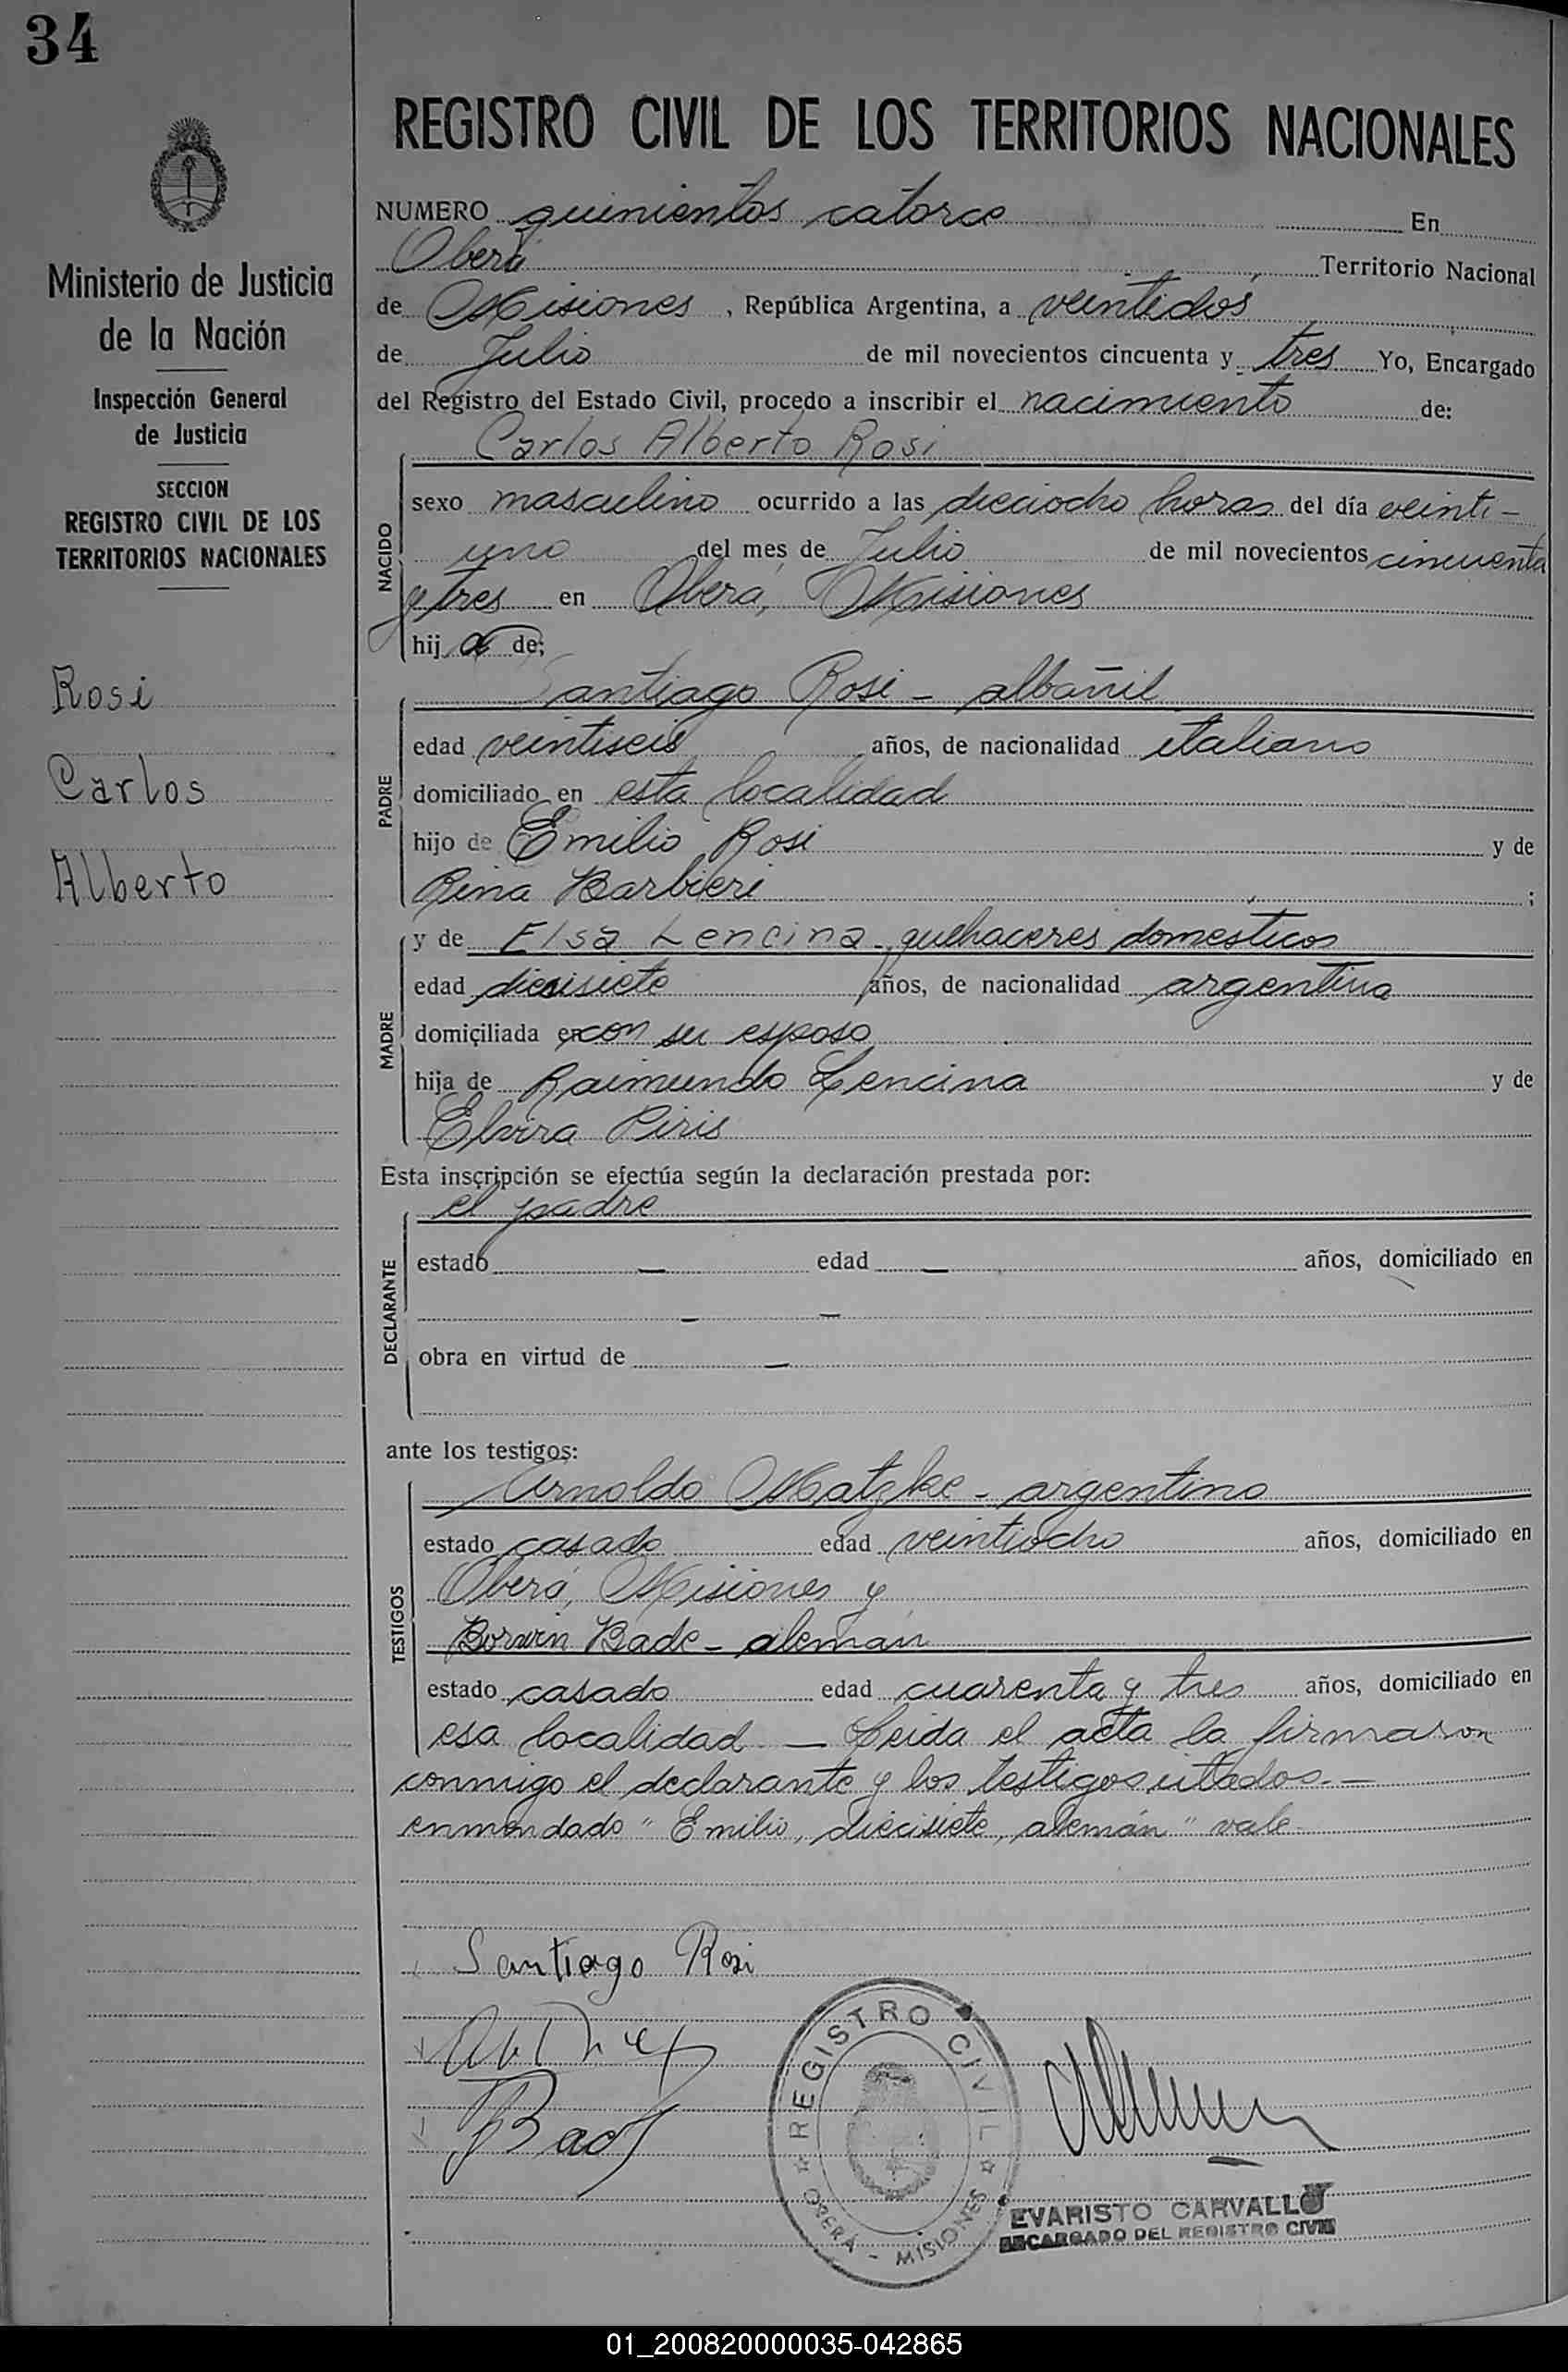 34
REGISTRO CIVIL DE LOS TERRITORIOS NACIONALES
Ministerio de Justicia
de la Nación
Inspección General
de Justicia
SECCION
REGISTRO CIVIL DE LOS
TERRITORIOS NACIONALES
Rosi
Carlos
Alberto
NUMERO quinientos catorce En
Oberá Territorio Nacional
de Misiones, República Argentina, a veintidos
de Julio de mil novecientos cincuenta y tres Yo, Encargado
del Registro del Estado Civil, procedo a inscribir el nacimiento de:
NACIDO
Carlos Alberto Rosi
sexo masculino ocurrido a las dieciocho horas del día veinti-
uno del mes de Julio de mil novecientos cincuenta
y tres en Oberá, Misiones
hijo de;
PADRE
Santiago Rosi - albañil
edad veintiseis años, de nacionalidad italiano
domiciliado en esta localidad
hijo de Emilio Rosi y de
Rina Barbieri ;
MADRE
y de Elsa Lencina - quehaceres domesticos
edad diecisiete años, de nacionalidad argentina
domiciliada en con su esposo
hija de Raimundo Lencina y de
Elvira Piris
Esta inscripción se efectúa según la declaración prestada por:
DECLARANTE
el padre
estado — edad — años, domiciliado en
— —
obra en virtud de —
ante los testigos:
TESTIGOS
Arnoldo Matzke - argentino
estado casado edad veintiocho años, domiciliado en
Oberá, Misiones y
Borwin Bade - alemán
estado casado edad cuarenta y tres años, domiciliado en
esa localidad — Leida el acta la firmaron
conmigo el declarante y los testigos citados.—
enmendado "Emilio, diecisiete, alemán" vale
Santiago Rosi
Bade
REGISTRO CIVIL
OBERÁ - MISIONES
EVARISTO CARVALLO
ENCARGADO DEL REGISTRO CIVIL
01_200820000035-042865